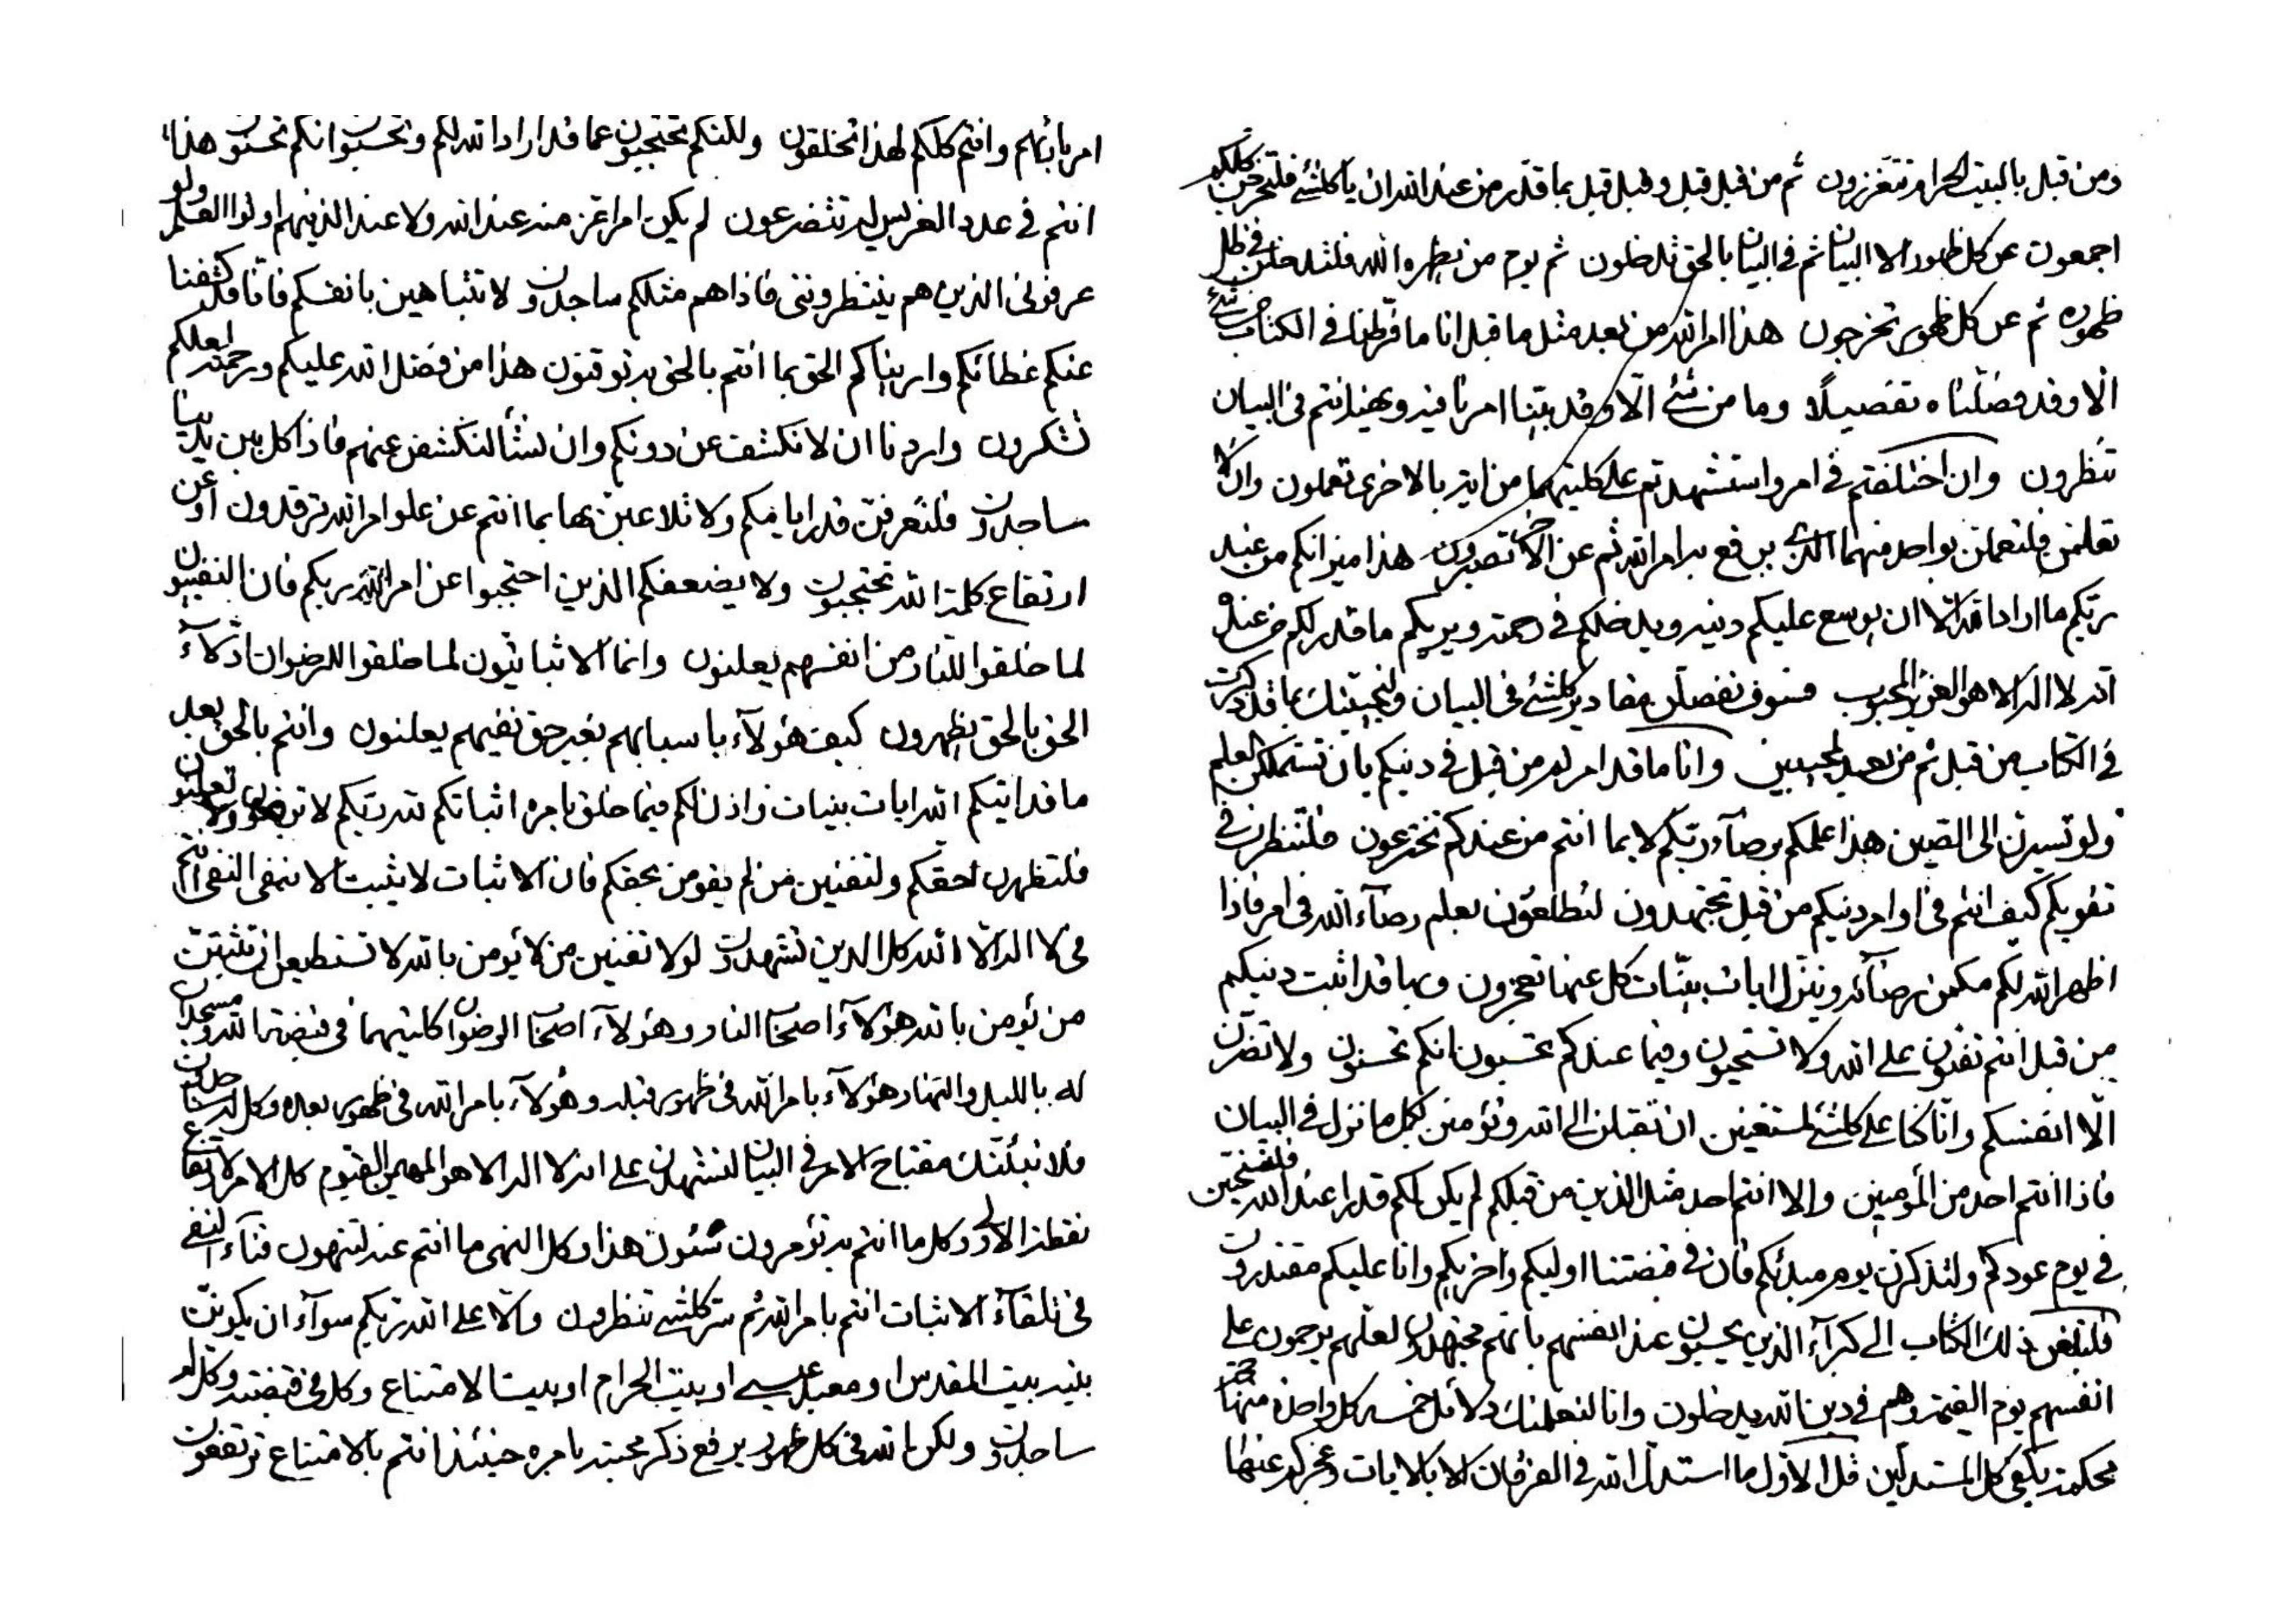 ومن قبل بالبيت الحرام تتعززون ثم من قبل قبل وقبل قبل بما قدر من عند الله ان يا كلشئ فلتخرجن كلكم
اجمعون عن كل ظهور الا البيان ثم في البيان بالحق تدخلون ثم يوم من يظهره الله فلتدخلن في ظل
ظهوره ثم عن كل ظهور تخرجون هذا امر الله من بعد مثل ما قبل انا ما فرطنا في الكتاب من شئ
الا وقد فصلناه تفصيلا وما من شئ الا وقد بينا امرنا فيه وحينئذ انتم في البيان
تنظرون وان اختلفتم في امر واستشهدتم على كليتهما من اية بالاخرى تعملون وان لا
تعلمن فلتعملن بواحد منهما الذي يرفع به امر الله ثم عن الاخر تصبرون هذا ميزانكم من عند
ربكم ما اراد الله الا ان يوسع عليكم دينه ويدخلكم في رحمته ويريكم ما قدر لكم من عنده
انه لا اله الا هو العزيز المحبوب فسوف نفصلن مقادير كلشئ في البيان ولنجيبنك بما قد ذكرت
في الكتاب من قبل ثم من بعد لمجيبين وانا ما قد امرنا من قبل في دينكم بان تستملكن العلم
ولو تسيرن الى الصين هذا علمكم برضاء ربكم لا بما انتم من عندكم تخترعون فلتنظرن في
تقويكم كيف انتم في اوامر دينكم من قبل تجتهدون لتطلعون بعلم رضاء الله في امر فاذا
اظهر الله لكم مكمن رضائه وينزل ايات بينات كل عنها تعجزون وبها قد اثبت دينكم
من قبل انتم تفتون على الله ولا تستحيون وفيما عندكم تحسبون انكم تحسنون ولا تضرن
الا انفسكم وانا كنا على كلشئ لمستغنين ان تقبلن الى الله وتؤمنن بكل ما نزل في البيان
فاذا انتم احد من المؤمنين والا انتم احد مثل الذين من قبلكم لم يكن لكم قدرا عند الله فلتستحين
في يوم عودكم ولتذكرن يوم مبدئكم فان في قبضتنا اوليكم واخريكم وانا عليكم مقتدرون
فلتبلغن ذلك الكتاب الى كبراء الذين يحسبون عند انفسهم بانهم مجتهدون لعلهم يرحمون على
انفسهم يوم القيمة وهم في دين الله يدخلون وانا لنعلمنك دلائل خمسه كل واحدة منها حجة
محكمة يكفي كل المستدلين قل الاول ما استدل الله في الفرقان الا بالايات وعجز كل عنها
امر بابهم وانتم كلكم لهذا تخلقون ولكنكم تحتجبون عما قد اراد الله لكم وتحسبون انكم تحسنون هذا
انتم في عدد الفريس ليه تتضرعون لم يكن امرا عز منه عند الله ولا عند الذينهم اولوا العلم ولو
عرفوني الذين هم ينتظرونني فاذا هم مثلكم ساجدون ولا تتباهين بانفسكم فانا قد كشفنا
عنكم غطائكم واريناكم الحق بما انتم بالحق به توقنون هذا من فضل الله عليكم ورحمته لعلكم
تشكرون واردنا ان لا نكشف عن دونكم وان نشأ لنكشفن عنهم فاذا كل بين يدينا
ساجدون فلتعرفن قدر ايامكم ولا تلاعبن بها بما انتم عن علو امر الله ترقدون او عن
ارتفاع كلمة الله تحتجبون ولا يضعفكم الذين احتجبوا عن امر الله ربكم فان النفييون
لما خلقوا للنار من انفسهم يعلنون وانما الاثباتيون لما خلقوا للرضوان ادلاء
الحق بالحق يظهرون كيف هؤلاء باسبابهم بغير حق نفيهم يعلنون وانتم بالحق بعد
ما قد اتيكم الله ايات بينات واذن لكم فيما خلق بامره اثباتكم لله ربكم لا ترضون ولا تعلنون
فلتظهرن حقكم ولتفنين من لم يؤمن بحقكم فان الاثبات لا يثبت الا بنفي النفي انتم
في لا اله الا الله كل الدين تشهدون لولا تفنين من لا يؤمن بالله لا تستطيعن ان تثبتن
من يؤمن بالله هؤلاء اصحاب النار وهؤلاء اصحاب الرضوان كليتهما في قبضة الله ويسجدان
له بالليل والنهار هؤلاء بامر الله في ظهور قبله وهؤلاء بامر الله في ظهور بعده وكل له ساجدون
فلانبئنك مفتاح الامر في البيان لتشهدن على انه لا اله الا هو المهيمن القيوم كل الامر لارتفاع
نقطة الاولى وكل ما انتم به تؤمرون شئون هذا وكل النهي ما انتم عنه لتنهون فناء النفي
في تلقاء الاثبات انتم بامر الله ثم سر كلشئ تنظرون والا على الله ربكم سواء ان يكونن
بنيه بيت المقدس او معبد عيسى او بيت الحرام او بيت الامتناع وكل في قبضته وكل له
ساجدون ولكن الله في كل ظهور يرفع ذكر محبته بامره حينئذ انتم بالامتناع ترتفعون